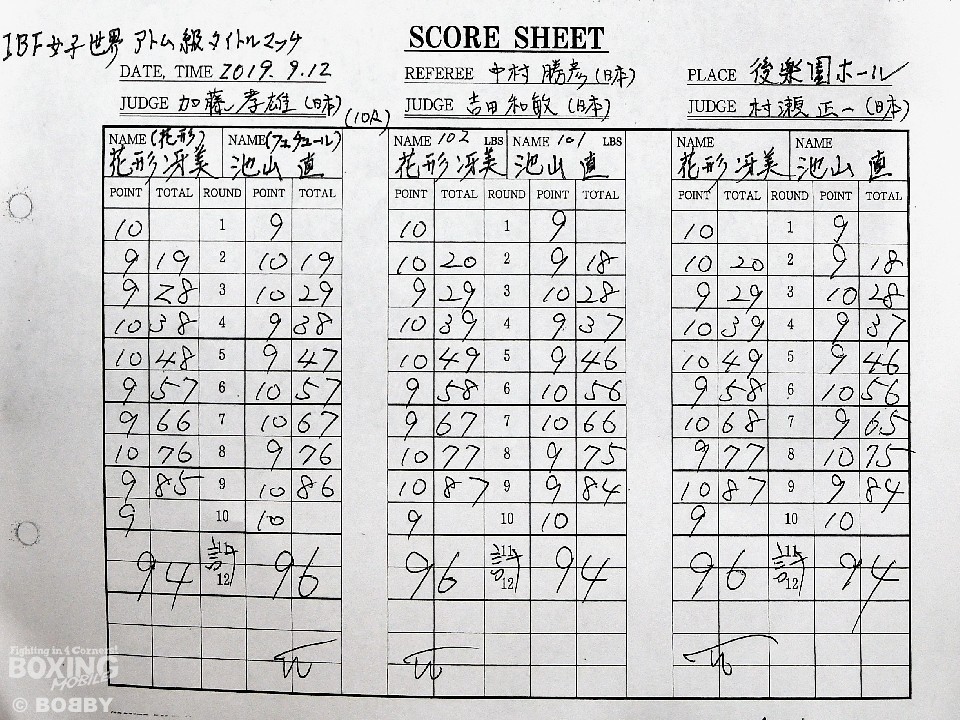 SCORE SHEET
IBF女子世界アトム級タイトルマッチ
DATE, TIME 2019. 9.12 REFEREE 中村勝彦(日本) PLACE 後楽園ホール
JUDGE 加藤孝雄(日本) (10R) JUDGE 吉田和敏(日本) JUDGE 村瀬正一(日本)
NAME (花形) NAME (フュチュール) NAME 102 LBS NAME 101 LBS NAME NAME
花形冴美 池山直 花形冴美 池山直 花形冴美 池山直
POINT TOTAL ROUND POINT TOTAL POINT TOTAL ROUND POINT TOTAL POINT TOTAL ROUND POINT TOTAL
10 1 9 10 1 9 10 1 9
9 19 2 10 19 10 20 2 9 18 10 20 2 9 18
9 28 3 10 29 9 29 3 10 28 9 29 3 10 28
10 38 4 9 38 10 39 4 9 37 10 39 4 9 37
10 48 5 9 47 10 49 5 9 46 10 49 5 9 46
9 57 6 10 57 9 58 6 10 56 9 58 6 10 56
9 66 7 10 67 9 67 7 10 66 10 68 7 9 65
10 76 8 9 76 10 77 8 9 75 9 77 8 10 75
9 85 9 10 86 10 87 9 9 84 10 87 9 9 84
9 10 10 9 10 10 9 10 10
11 11 11
94 計 96 96 計 94 96 計 94
12 12 12
Fighting in 4 Corners!
BOXING
MOBILE
© BOBBY